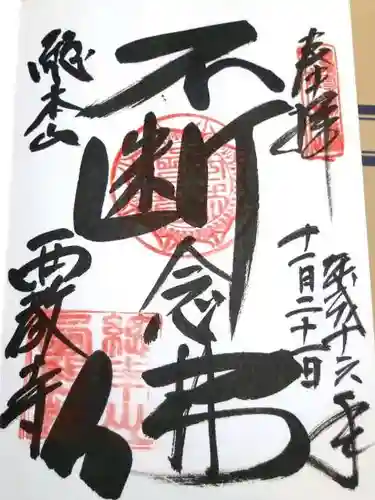 奉拝
平成十六年
十一月二十一日
不断念佛
総本山
西教寺